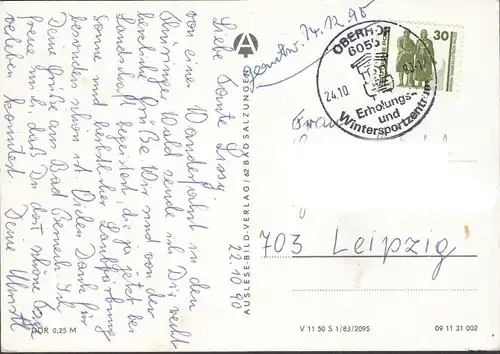 Liebe Tante Lissy,
von einer Wanderfahrt in den
Thüringer Wald sende ich Dir recht
herzliche Grüße. Wir sind von der
Landschaft begeistert, die jetzt bei
Sonne und herbstlicher Laubfärbung
besonders schön ist. Vielen Dank für
Deine Grüße aus Bad Berneck. Ich
freue mich, daß Du dort schöne Tage
verleben konntest. Deine
22.10.90
DDR 0,25 M
A
AUSLESE-BILD-VERLAG/62 BAD SALZUNGEN
14.12.90
OBERHOF
6055
24.10.
Erholungs-
und
Wintersportzentrum
30
Frau
703 Leipzig
V 11 50 S 1/83/2095
09 11 31 002